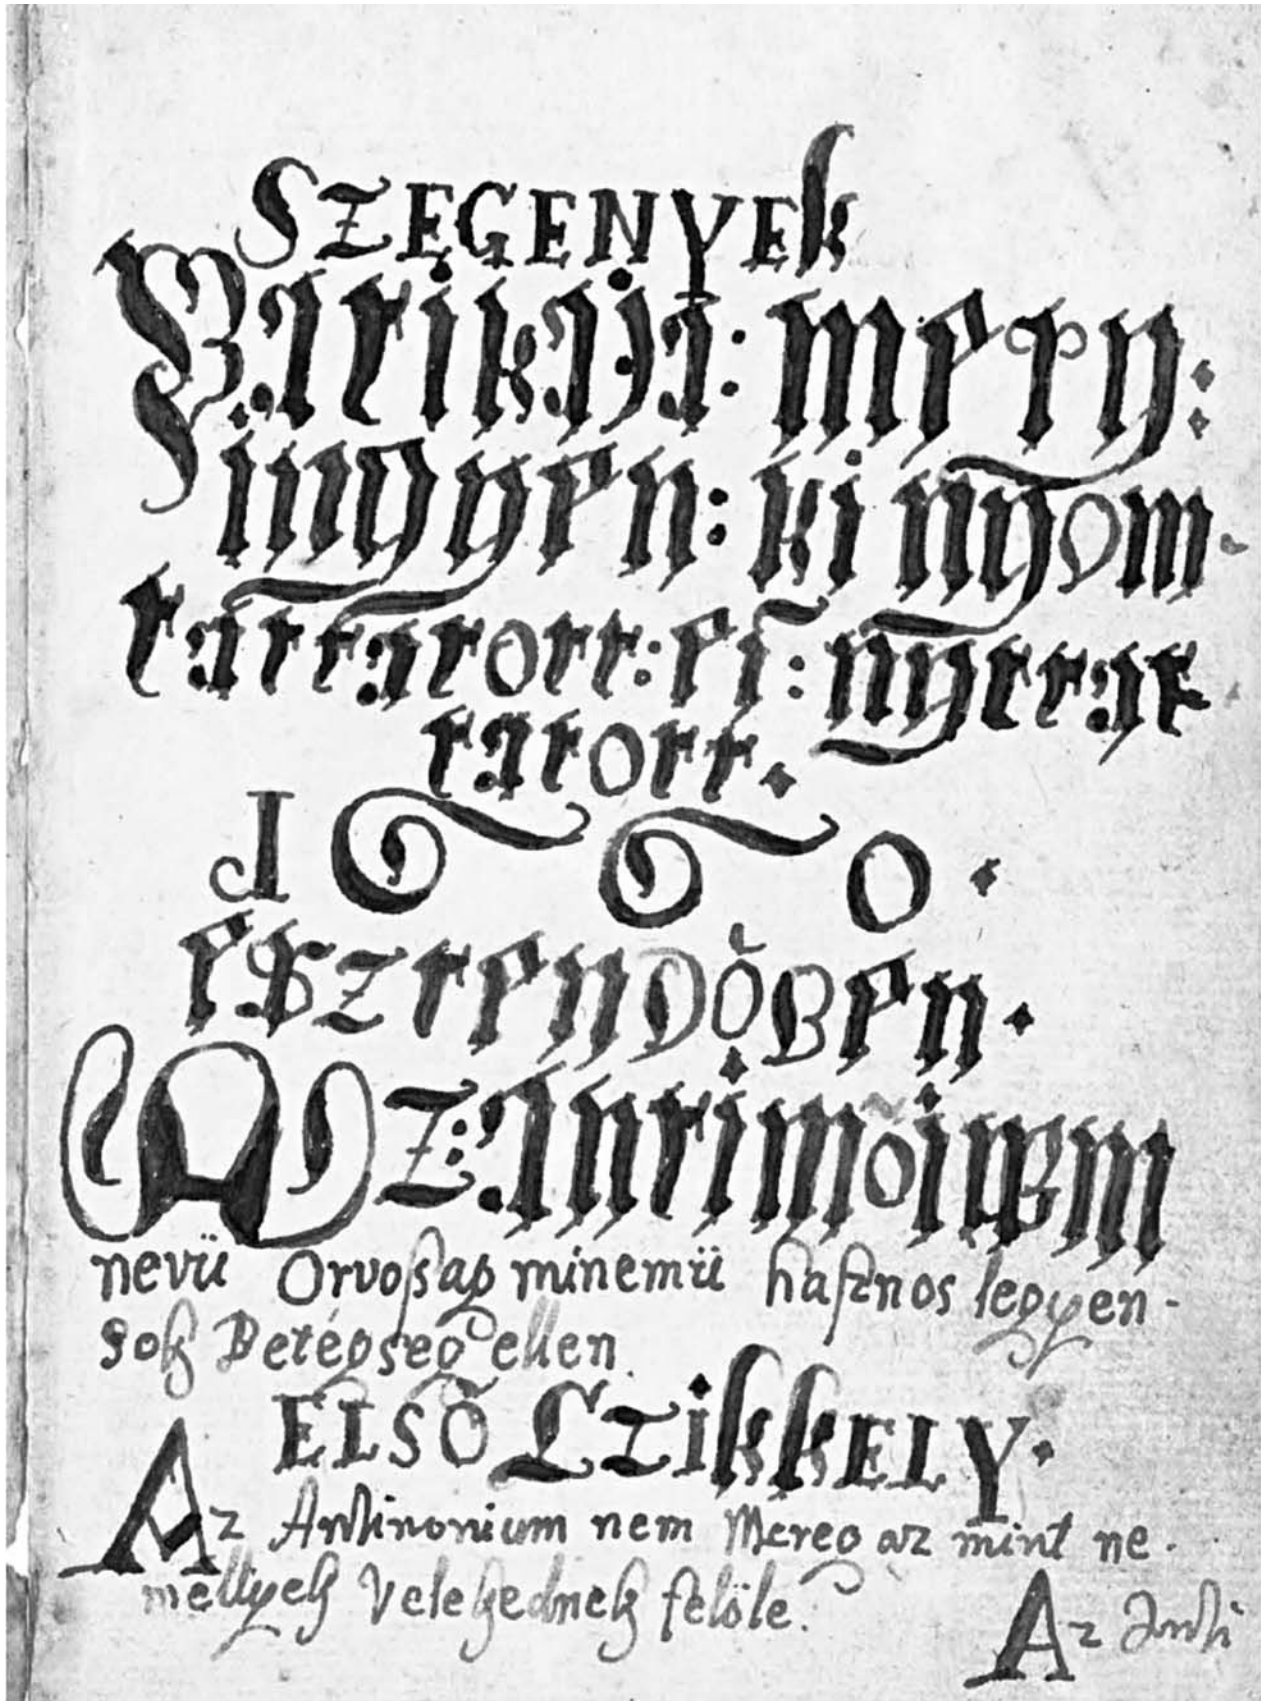 SZEGENYEk
Patikaja: mely:
ingyen: ki nyom-
tattatott: es: nyittat
tatott.
1660.
esztendöBen.
AZ: Antimoium
nevü Orvossag minemü hasznos legyen-
sok Betégseg ellen
ELSÖ CZikkELY.
Az Antinonium nem Mereg az mint ne-
mellyek velekednek felöle.
Az Anti